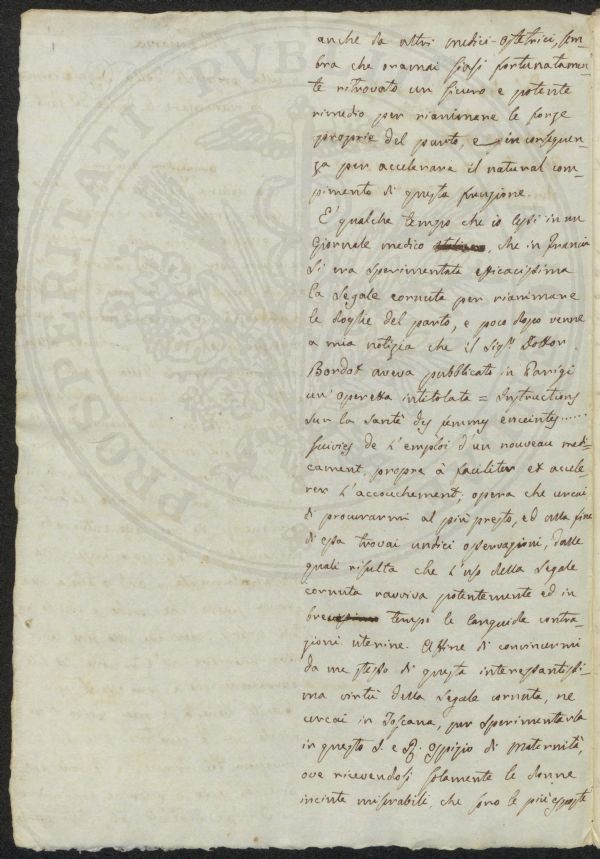 anche da altri medici-ostetrici, sem-
bra che oramai siasi fortunatamen-
te ritrovato un sicuro e potente
rimedio per rianimare le forze
proprie del parto, e in conseguen-
za per accelerare il natural com-
pimento di questa funzione.
E' qualche tempo che io lessi in un
Giornale medico, che in Francia
si era sperimentata efficacissima
la Segale cornuta per rianimare
le doglie del parto, e poco dopo venne
a mia notizia che il Sigr. Dottor
Bordot aveva pubblicato in Parigi
un' operetta intitolata = Instructions
sur la santè des femmes enceintes......
suivies de l'emploi d'un nouveau medi-
cament, propre à faciliter et accele-
rer l'accouchement; opera che cercai
di procurarmi al più presto, ed alla fine
di essa trovai undici osservazioni, dalle
quali risulta che l'uso della Segale
cornuta ravviva potentemente ed in
breve tempo le languide contra-
zioni uterine. Affine di convincermi
da me stesso di questa interessantissi-
ma virtù della Segale cornuta, ne
cercai in Toscana, per sperimentarla
in questo I. e R. Ospizio di Maternità,
ove ricevendosi solamente le donne
incinte miserabili, che sono le più esposte
PROSPERITATI PVBL